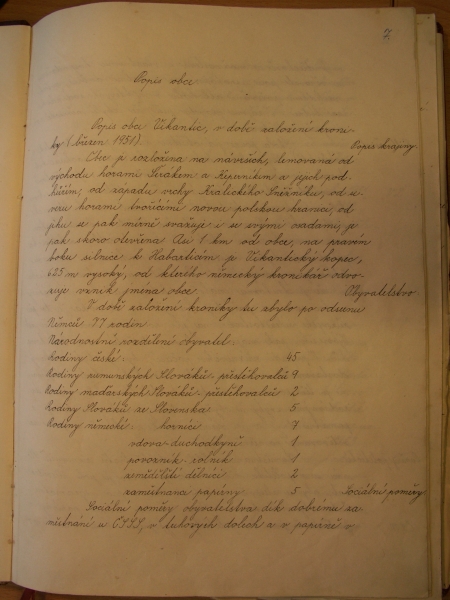 7
Popis obce
Popis obce Vikantic, v době založení kroni-
ky (březen 1951).
Popis krajiny
Obec je rozložena na návrších, lemovaná od
východu horami Šerákem a Keprníkem a jejich pod-
hůřím, od západu vrchy Králického Sněžníku, od se-
veru horami tvořícími novou polskou hranici, od
jihu se pak mírně svažuje i se svými osadami, je
pak skoro otevřena. Asi 1 km od obce, na pravém
boku silnice k Habarticím je Vikantický kopec,
655 m vysoký, od kterého německý kronikář odvo-
zuje vznik jména obce.
Obyvatelstvo
V době založení kroniky tu zbylo po odsunu
Němců 77 rodin
Národnostní rozdělení obyvatel:
Rodiny české: 45
Rodiny rumunských Slováků-přestěhovalců 9
Rodiny maďarských Slováků-přestěhovalců 2
Rodiny Slováků ze Slovenska 5
Rodiny německé: horníci 7
vdova-duchodkyně 1
povozník-rolník 1
zemědělští dělníci 2
zaměstnanci papírny 5
Sociální poměry
Sociální poměry obyvatelstva dík dobrému za-
městnání u ČSSS, v tuhových dolech a v papírně v